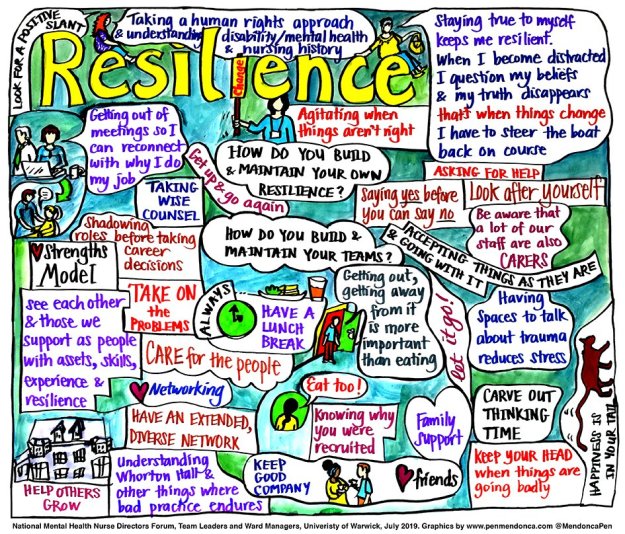 LOOK FOR A POSITIVE
SLANT
Taking a human rights approach
& understanding disability/mental health
& nursing history
Resilience
Change
Staying true to myself
keeps me resilient.
When I become distracted
I question my beliefs
& my truth disappears
that's when things change
I have to steer the boat
back on course
Getting out of
meetings so I
can reconnect
with why I do
my job
Agitating when
things aren't right
Get up & go again
HOW DO YOU BUILD
& MAINTAIN YOUR OWN
RESILIENCE?
ASKING FOR HELP
TAKING
WISE
COUNSEL
Saying yes before
you can say no
Look after yourself
Be aware that
a lot of our
staff are also
CARERS
Shadowing
roles before taking
career
decisions
HOW DO YOU BUILD &
MAINTAIN YOUR TEAMS?
ACCEPTING THINGS AS THEY ARE
& GOING WITH IT
Strengths
Model
see each other
& those we
support as people
with assets, skills,
experience &
resilience
TAKE ON
the
PROBLEMS
ALWAYS
HAVE A
LUNCH
BREAK
Getting out,
getting away
from it
is more
important
than eating
let it go!
Having
Spaces to talk
about trauma
reduces stress
CARE for the people
Networking
Eat too!
HAVE AN EXTENDED,
DIVERSE NETWORK
Knowing why
you were
recruited
Family
Support
CARVE OUT
THINKING
TIME
HAPPINESS IS
IN YOUR TAIL
HELP OTHERS
GROW
Understanding
Whorton Hall &
other things where
bad practice endures
KEEP
GOOD
COMPANY
friends
KEEP YOUR HEAD
when things are
going badly
National Mental Health Nurse Directors Forum, Team Leaders and Ward Managers, Univeristy of Warwick, July 2019. Graphics by www.penmendonca.com @MendoncaPen